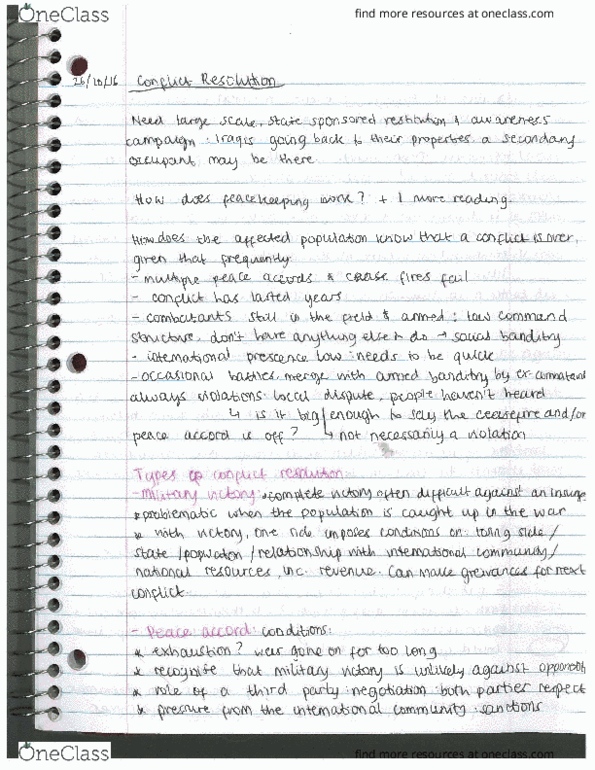 OneClass
find more resources at oneclass.com
26/10/16 Conflict Resolution
Need large scale, state sponsored restitution & awareness
campaign: Iraqis going back to their properties, a secondary
occupant may be there
How does peacekeeping work? + 1 more reading.
How does the affected population know that a conflict is over,
given that frequently:
- multiple peace accords & cease fires fail
- conflict has lasted years
- combatants still in the field & armed: law command
structure, don't have anything else to do → social banditry
- international presence low: needs to be quick
- occasional battles, merge with armed banditry by ex-
always violations: local dispute, people haven't heard
↳ is it big enough to say the ceasefire and/or
peace accord is off? ↳ not necessarily a violation
Types of conflict resolution
- Military victory: * complete victory often difficult against an
* problematic when the population is caught up in the war
* with victory, one side imposes conditions on losing side/
state/population/relationship with international community/
national resources, inc. revenue. Can make greivances for next
conflict.
- Peace accord: conditions:
* exhaustion? war gone on for too long
* recognise that military victory is unlikely against
* role of a third party: negotiation: both parties respect
* pressure from the international community: sanctions
OneClass
find more resources at oneclass.com